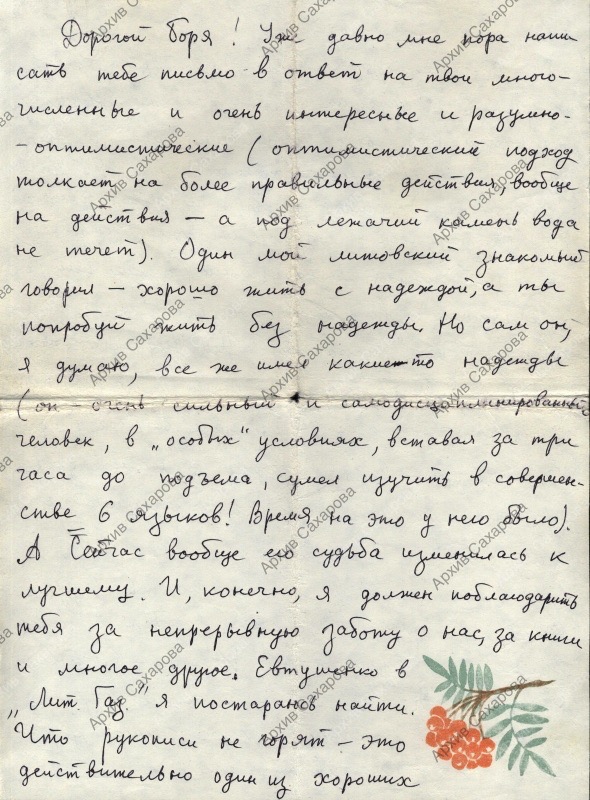 Дорогой Боря! Уже давно мне пора напи
сать тебе письмо в ответ на твои много-
численные и очень интересные и разумно-
-оптимистические (оптимистический подход
толкает на более правильные действия, вообще
на действия – а под лежачий камень вода
не течет). Один мой литовский знакомый
говорил – хорошо жить с надеждой, а ты
попробуй жить без надежды. Но сам он,
я думаю, все же имел какие-то надежды
(он очень сильный и самодисциплинированный
человек, в „особых" условиях, вставал за три
часа до подъема, сумел изучить в совершен-
стве 6 языков! Время на это у него было).
А Сейчас вообще его судьба изменилась к
лучшему. И, конечно, я должен поблагодарить
тебя за непрерывную заботу о нас, за книги
и многое другое. Евтушенко в
„Лит. Газ." я постараюсь найти.
Что рукописи не горят – это
действительно один из хороших
Архив Сахарова